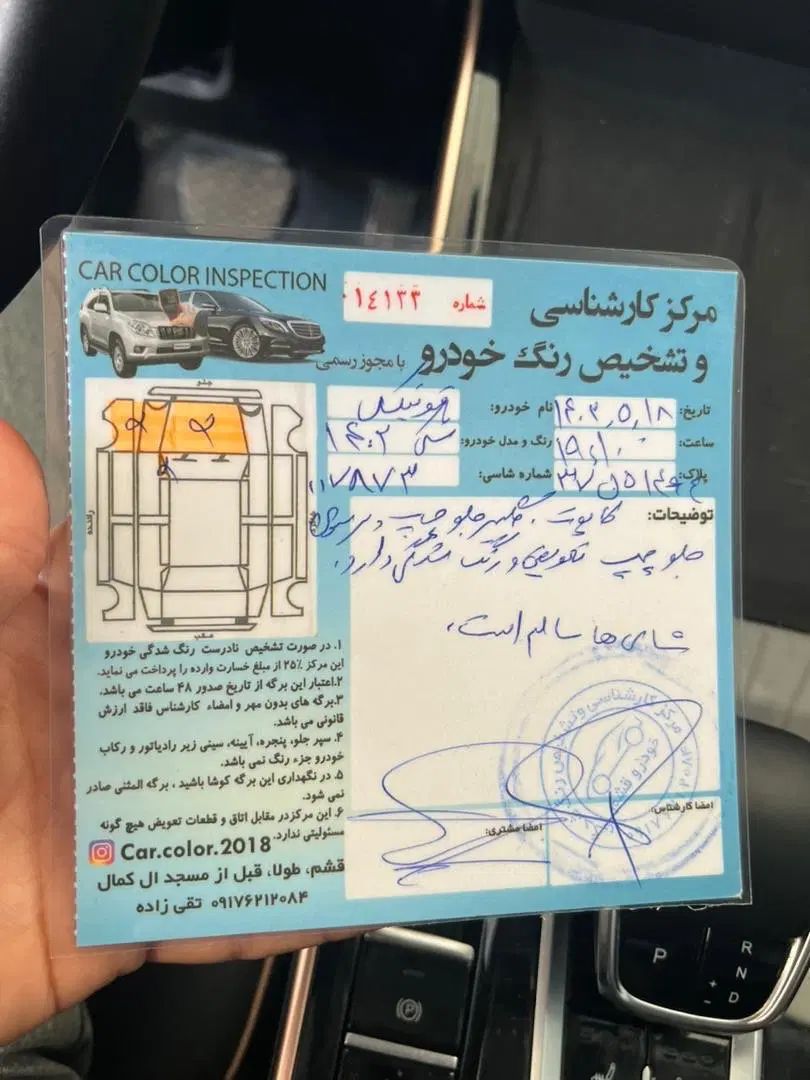 CAR COLOR INSPECTION
شماره ۰۱٤۱۳۳
مرکز کارشناسی
و تشخیص رنگ خودرو با مجوز رسمی
تاریخ: ۱۴۰۳,۵,۱۸ نام خودرو: فونیکس
ساعت: ۱۹,۱۰ رنگ و مدل خودرو: ۱۴۰۲
پلاک: شماره شاسی: ۰۰۷۸۷۳
توضیحات: کاپوت. گلگیر جلو چپ و
جلو چپ تعویض و رنگ شدگی دارد.
شاسی ها سالم است.
جلو
راننده
عقب
۱. در صورت تشخیص نادرست رنگ شدگی خودرو
این مرکز ۲۵٪ از مبلغ خسارت وارده را پرداخت می نماید.
۲.اعتبار این برگه از تاریخ صدور ۴۸ ساعت می باشد.
۳.برگه های بدون مهر و امضاء کارشناس فاقد ارزش
قانونی می باشد.
۴. سپر جلو، پنجره، آیینه، سینی زیر رادیاتور و رکاب
خودرو جزء رنگ نمی باشد.
۵. در نگهداری این برگه کوشا باشید ، برگه المثنی صادر
نمی شود.
۶. این مرکزدر مقابل اتاق و قطعات تعویض هیچ گونه
مسئولیتی ندارد.
امضا کارشناس:
امضا مشتری:
Car.color.2018
قشم، طولا، قبل از مسجد ال کمال
۰۹۱۷۶۲۱۲۰۸۴ تقی زاده
مرکز کارشناسی و تشخیص رنگ
خودرو قشم
P
R
N
D
+
-
(P)